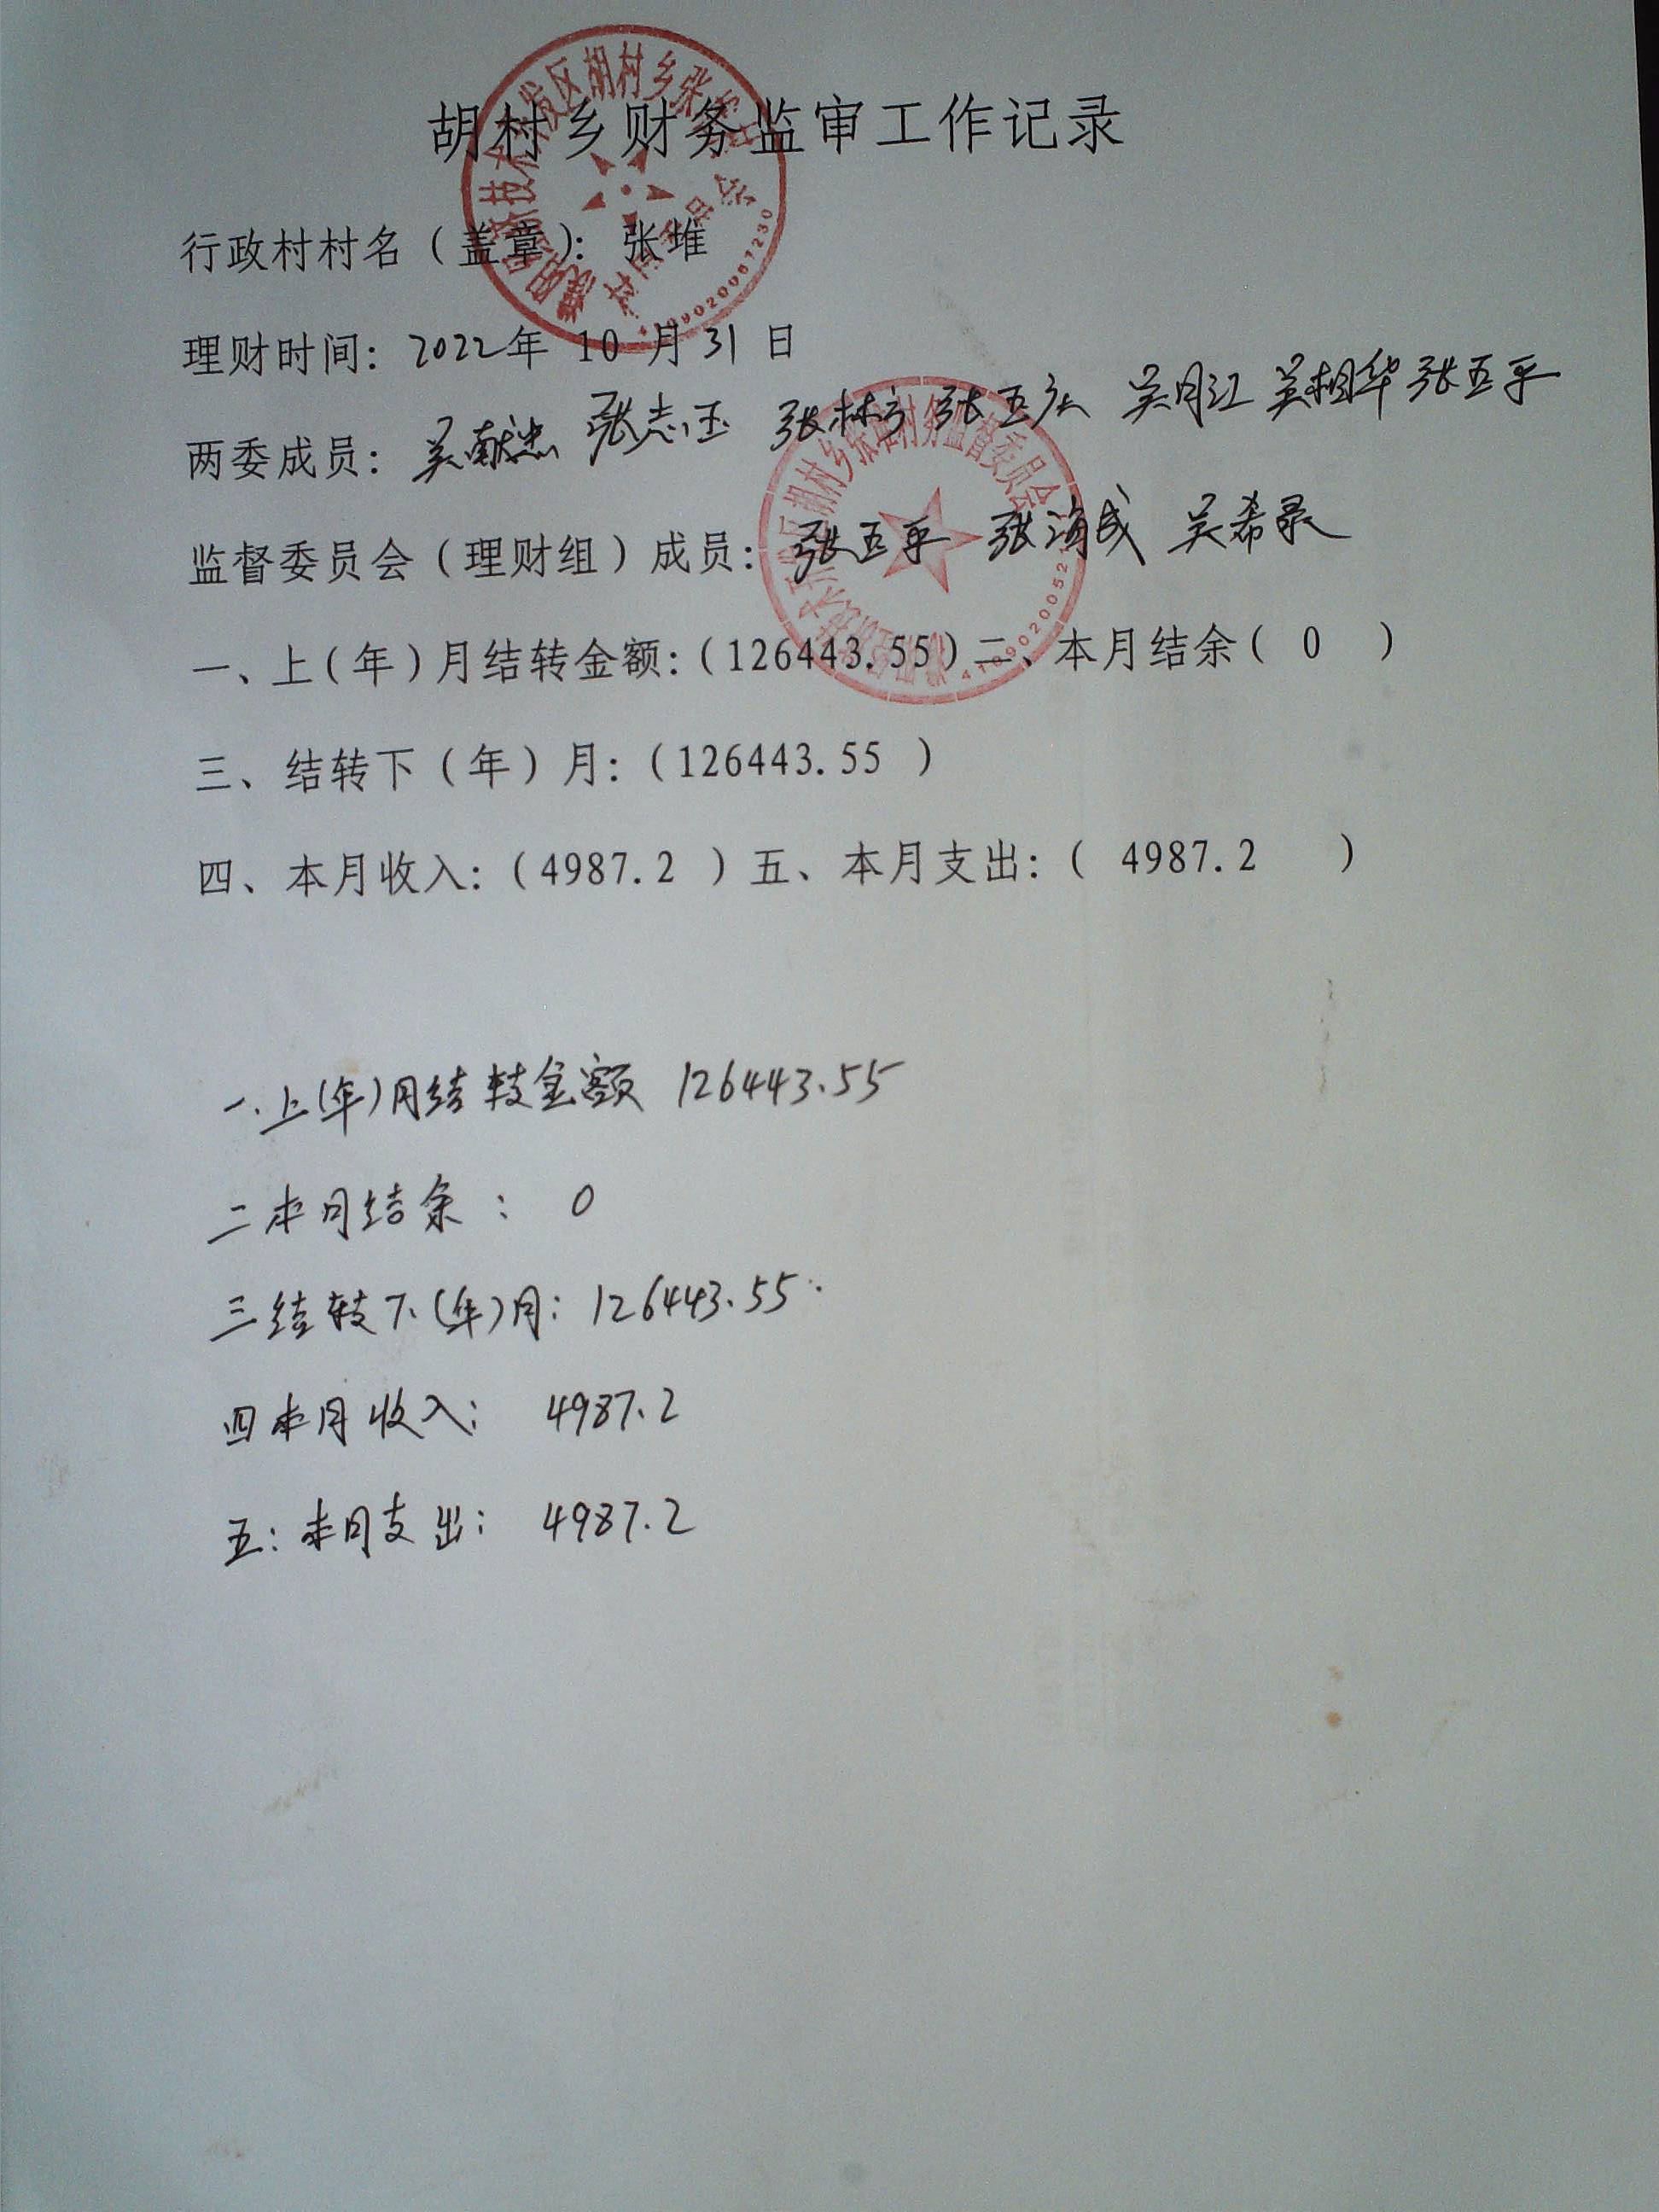 胡村乡财务监审工作记录
行政村村名（盖章）：张堆
理财时间：2022年 10 月 31 日
两委成员：吴献忠 张志玉 张林 张五 吴月江 吴相华 张五平
监督委员会（理财组）成员：张五平 张海成 吴希录
一、上（年）月结转金额：（126443.55）二、本月结余（ 0 ）
三、结转下（年）月：（126443.55 ）
四、本月收入：（4987.2 ）五、本月支出：（ 4987.2 ）
一.上(年)月结转金额 126443.55
二本月结余： 0
三结转下(年)月：126443.55
四本月收入： 4987.2
五：本月支出： 4987.2